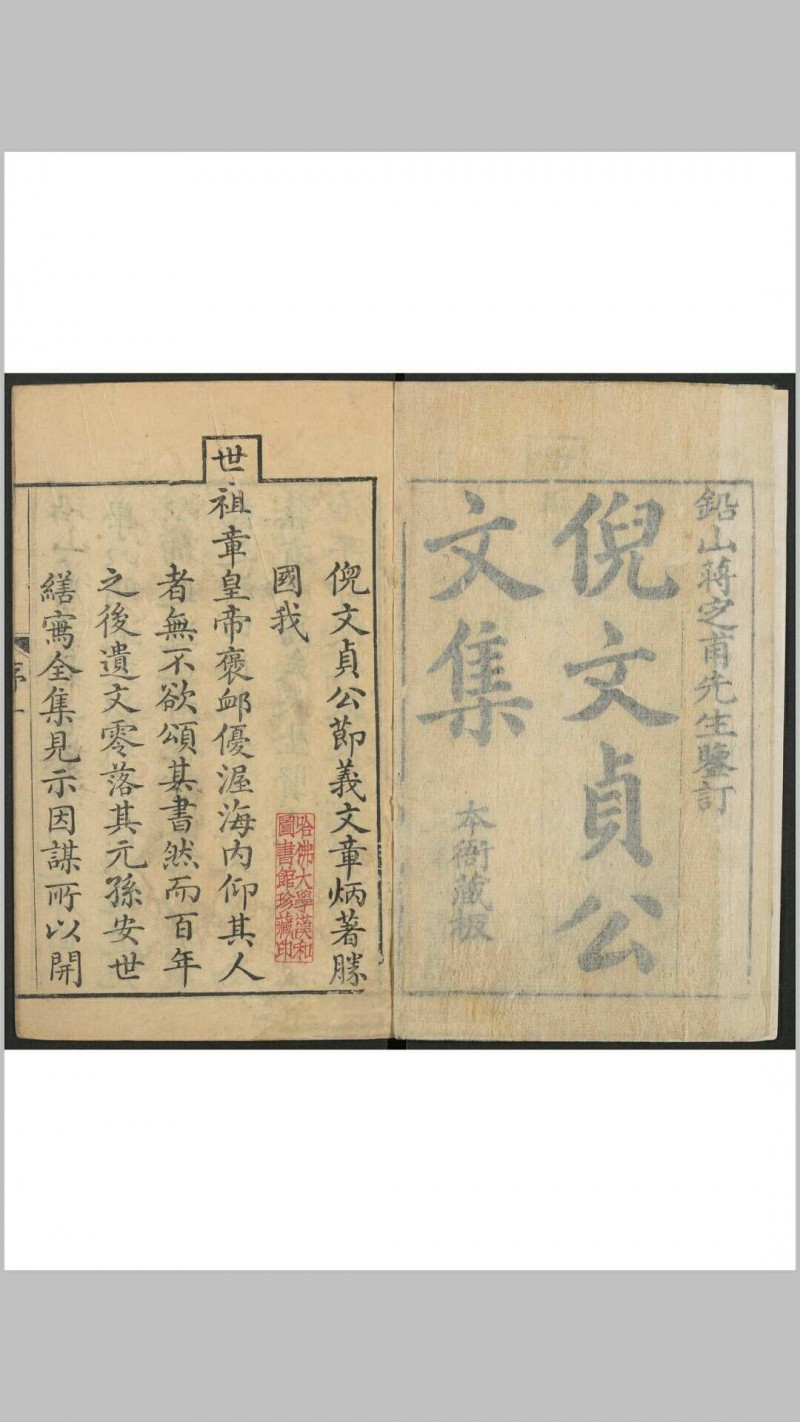 鉛山蔣定甫先生鑒訂
倪文貞公
文集
本衙藏板
倪文貞公節義文章炳著勝
國我
世祖章皇帝褒衈優渥海内仰其人
者無不欲頌其書然而百年
之後遺文零落其元孫安世
繕寫全集見示因謀所以開
序
一
哈佛大學漢和
圖書館珍藏印